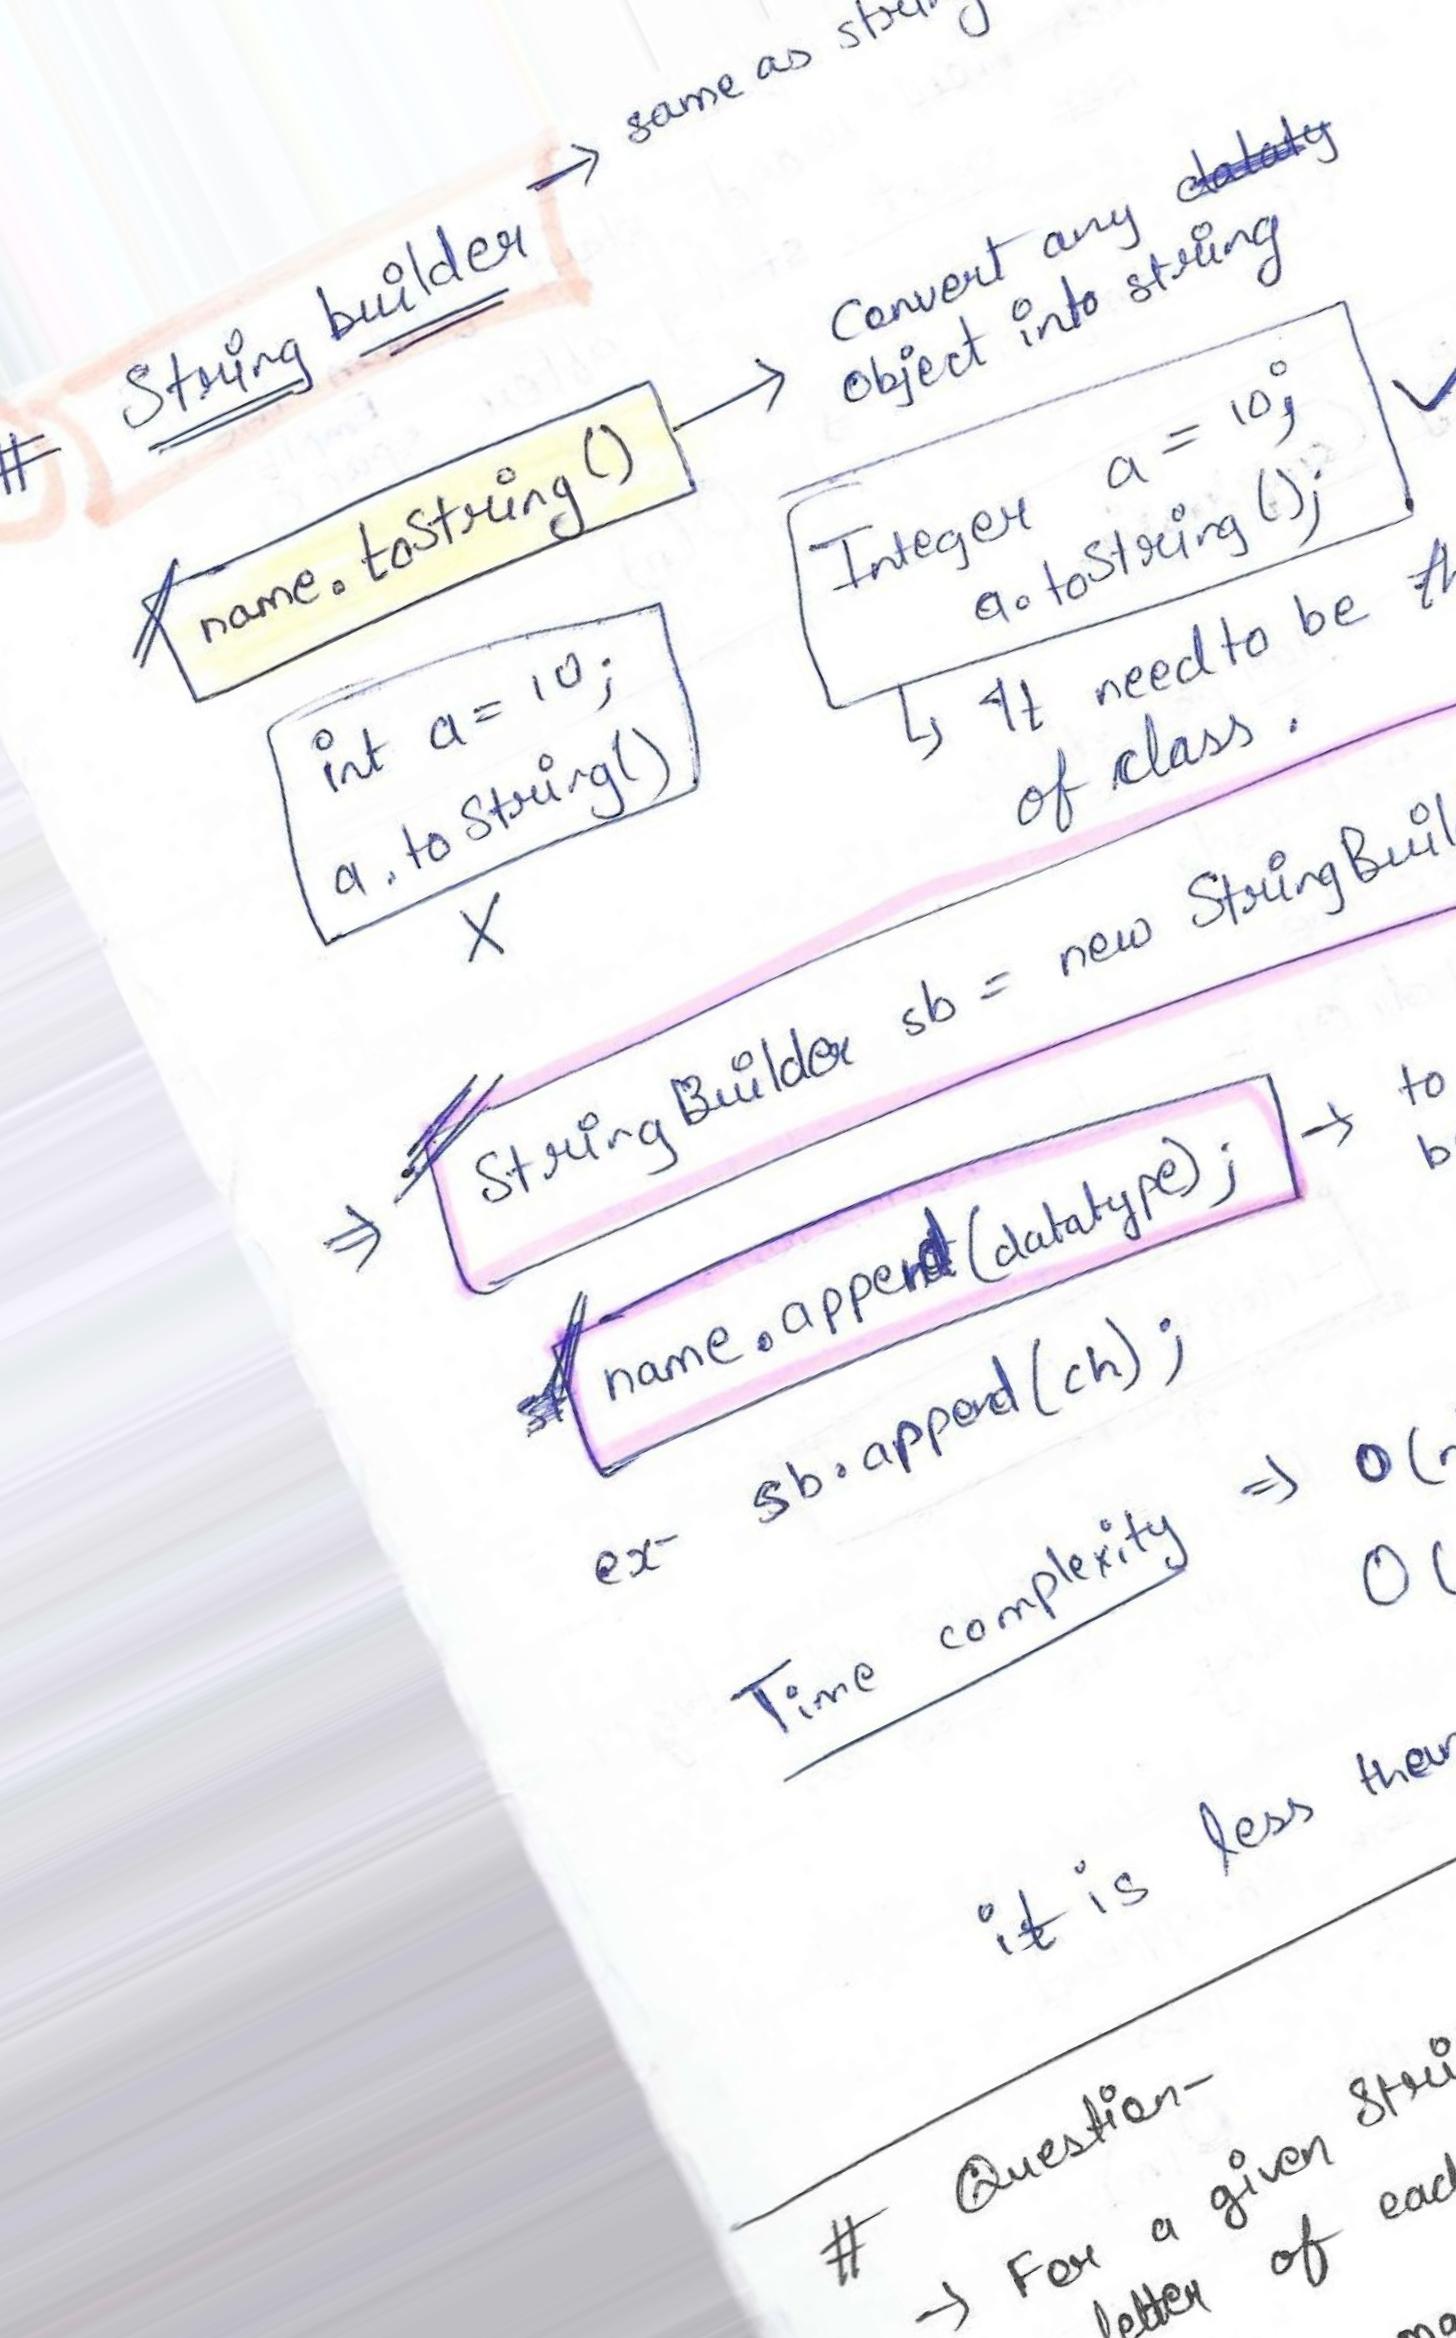 # String builder → same as string
name.toString() → Convert any
object into string
int a = 10;
a.toString()
X
Integer a = 10; ✓
a.toString();
↳ It need to be
of class.
⇒ StringBuilder sb = new StringBuil
name.append(datatype); → to
ex- sb.append(ch);
Time complexity ⇒ O(
O(
it is less
# Question-
→ For a given Stri
letter of each